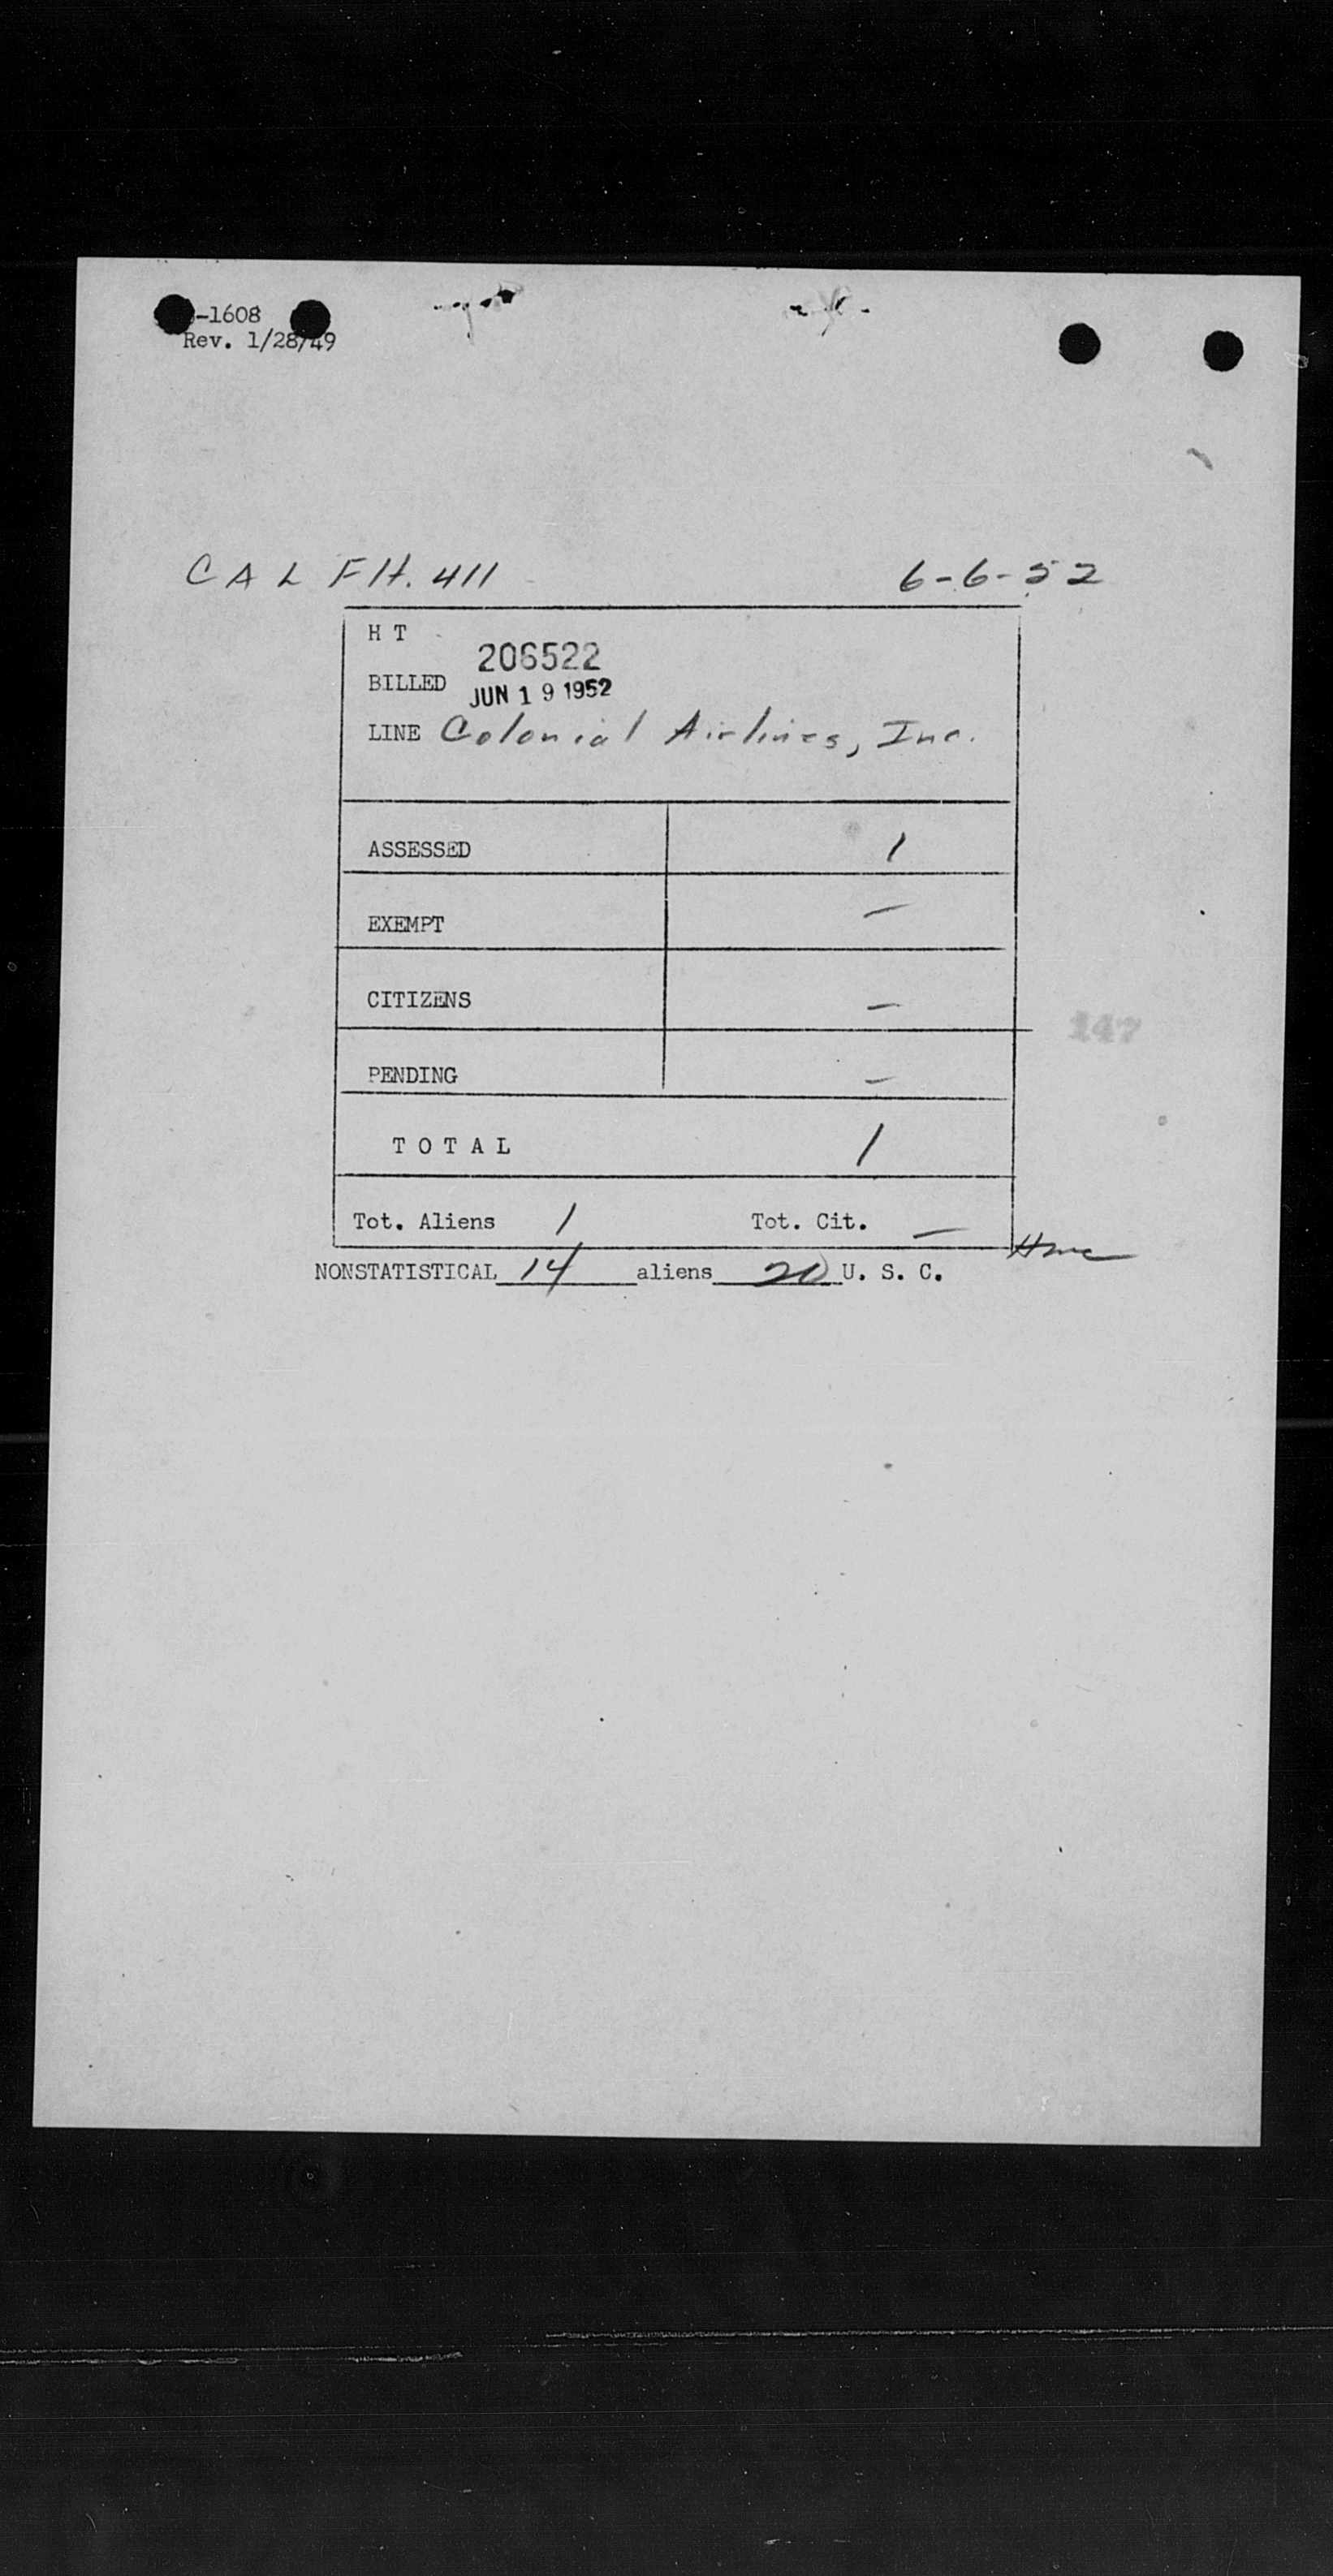 -1608
Rev. 1/28/49
CAL Flt. 411 6-6-52
H T
206522
BILLED JUN 19 1952
LINE Colonial Airlines, Inc.
ASSESSED 1
EXEMPT —
CITIZENS —
147
PENDING —
TOTAL 1
Tot. Aliens 1 Tot. Cit. —
NONSTATISTICAL 14 aliens 20 U. S. C.